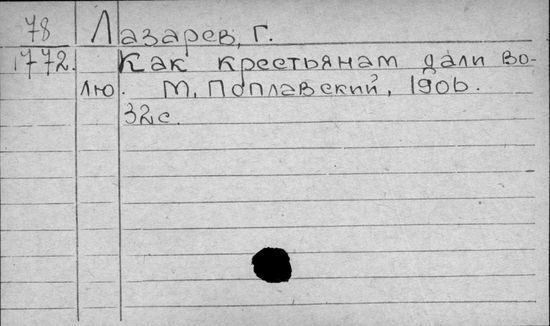 78 Лазарев, Г.
1772. Как крестьянам дали во-
лю. М, Поплавский, 1906.
32с.